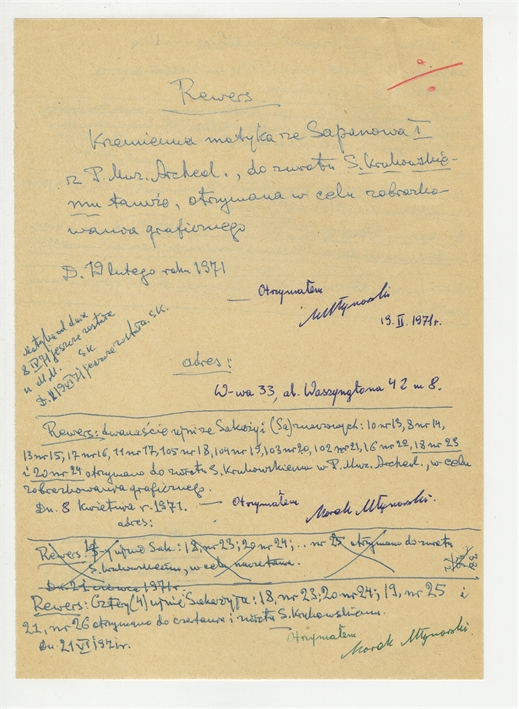 Rewers
Krzemienna motyka ze Sapanowa I
z P. Muz. Archeol., do zwrotu S. Krukowskie-
mu tamże, otrzymana w celu zobrazko-
wania graficznego
D. 19 lutego roku 1971
Otrzymałem
M Młynarski
19. II. 1971r.
8 IV 71 jeszcze
u M.M. S.K.
D. 21 VI 71 jeszcze S.K.
adres:
W-wa 33, al. Waszyngtona 42 m 8.
Rewers: dwanaście ze Są)znaczonych: 10 nr 13, 8 nr 14,
13 nr 15, 17 nr 16, 11 nr 17, 105 nr 18, 104 nr 19, 103 nr 20, 102 nr 21, 16 nr 22, 18 nr 23
i 20 nr 24 otrzymano do zwrotu S. Krukowskiemu w P. Muz. Archeol., w celu
zobrazkowania graficznego.
Dn. 8 kwietnia r. 1971. — Otrzymałem
Marek Młynarski.
adres:
Rewers : 18, nr 23; 20 nr 24; .. nr 25 otrzymano do zwrotu
S. Krukowskiemu, w celu
D. 21 czerwca 1971r.
Rewers: Cztery (4) : 18, nr 23; 20 nr 24; 19, nr 25 i
21, nr 26 otrzymano do i zwrotu S. Krukowskiemu.
Dn. 21 VI 1971r.
Otrzymałem
Marek Młynarski